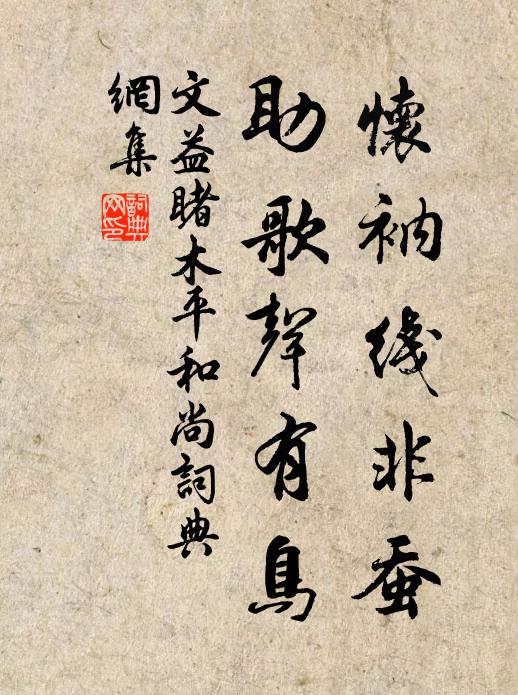 懷衲綫非蚕
助歌聲有鳥
文益睹木平和尚詞典
網集
詞典
网印